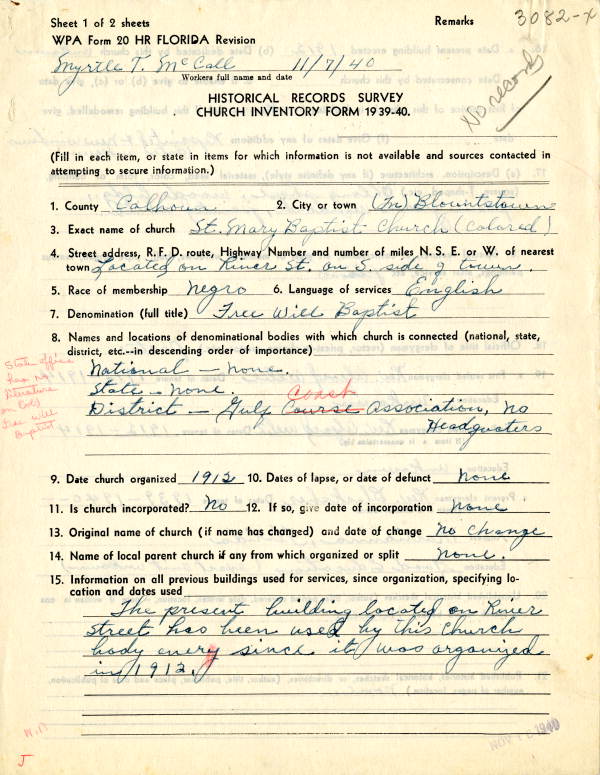 Sheet 1 of 2 sheets
Remarks
3082-x
WPA Form 20 HR FLORIDA Revision
Myrtle T. McCall 11/7/40
Workers full name and date
No records
HISTORICAL RECORDS SURVEY
CHURCH INVENTORY FORM 1939-40.
(Fill in each item, or state in items for which information is not available and sources contacted in
attempting to secure information.)
1. County Calhoun 2. City or town (In) Blountstown
3. Exact name of church St. Mary Baptist Church (Colored)
4. Street address, R.F.D. route, Highway Number and number of miles N. S. E. or W. of nearest
town Located on River St. on S. side of town.
5. Race of membership Negro 6. Language of services English
7. Denomination (full title) Free Will Baptist
8. Names and locations of denominational bodies with which church is connected (national, state,
district, etc.--in descending order of importance)
State office
has no
literature
on Col.
Free will
Baptist
National — none.
State — none.
Coast
District — Gulf Course Association, no
Headquaters
9. Date church organized 1912 10. Dates of lapse, or date of defunct none
11. Is church incorporated? No 12. If so, give date of incorporation none
13. Original name of church (if name has changed) and date of change no change
14. Name of local parent church if any from which organized or split none.
15. Information on all previous buildings used for services, since organization, specifying lo-
cation and dates used
The present building located on River
street has been used by this church
body every since it was organized
in 1912.
W.B
J
NOV 1940